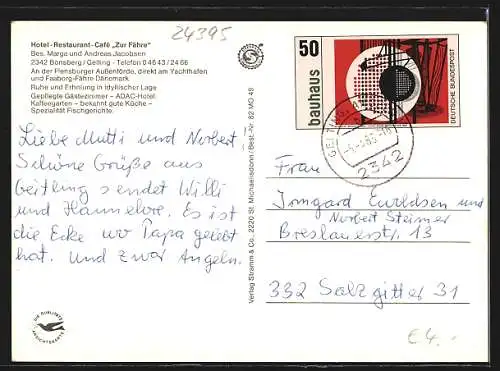 24395
Hotel-Restaurant-Café „Zur Fähre"
Bes. Marga und Andreas Jacobsen
2342 Bönsberg / Gelting · Telefon 0 46 43 / 24 66
An der Flensburger Außenförde, direkt am Yachthafen
und Faaborg-Fähre-Dänemark.
Ruhe und Erholung in idyllischer Lage
Gepflegte Gästezimmer – ADAC-Hotel
Kaffeegarten – bekannt gute Küche –
Spezialität Fischgerichte.
Liebe Mutti und Norbert
Schöne Grüße aus
Geltling sendet Willi
und Hannelore. Es ist
die Ecke wo Papa gelebt
hat. Und zwar Angeln.
DIE BELIEBTE
ANSICHTSKARTE
Verlag Stramm & Co. 2220 St. Michaelisdonn / Best.-Nr. 62 MO 49
50
bauhaus
DEUTSCHE BUNDESPOST
2342
Frau
Irmgard Ewoldsen und
Norbert Steimer
Breslauerstr. 13
332 Salzgitter 31
€4.-